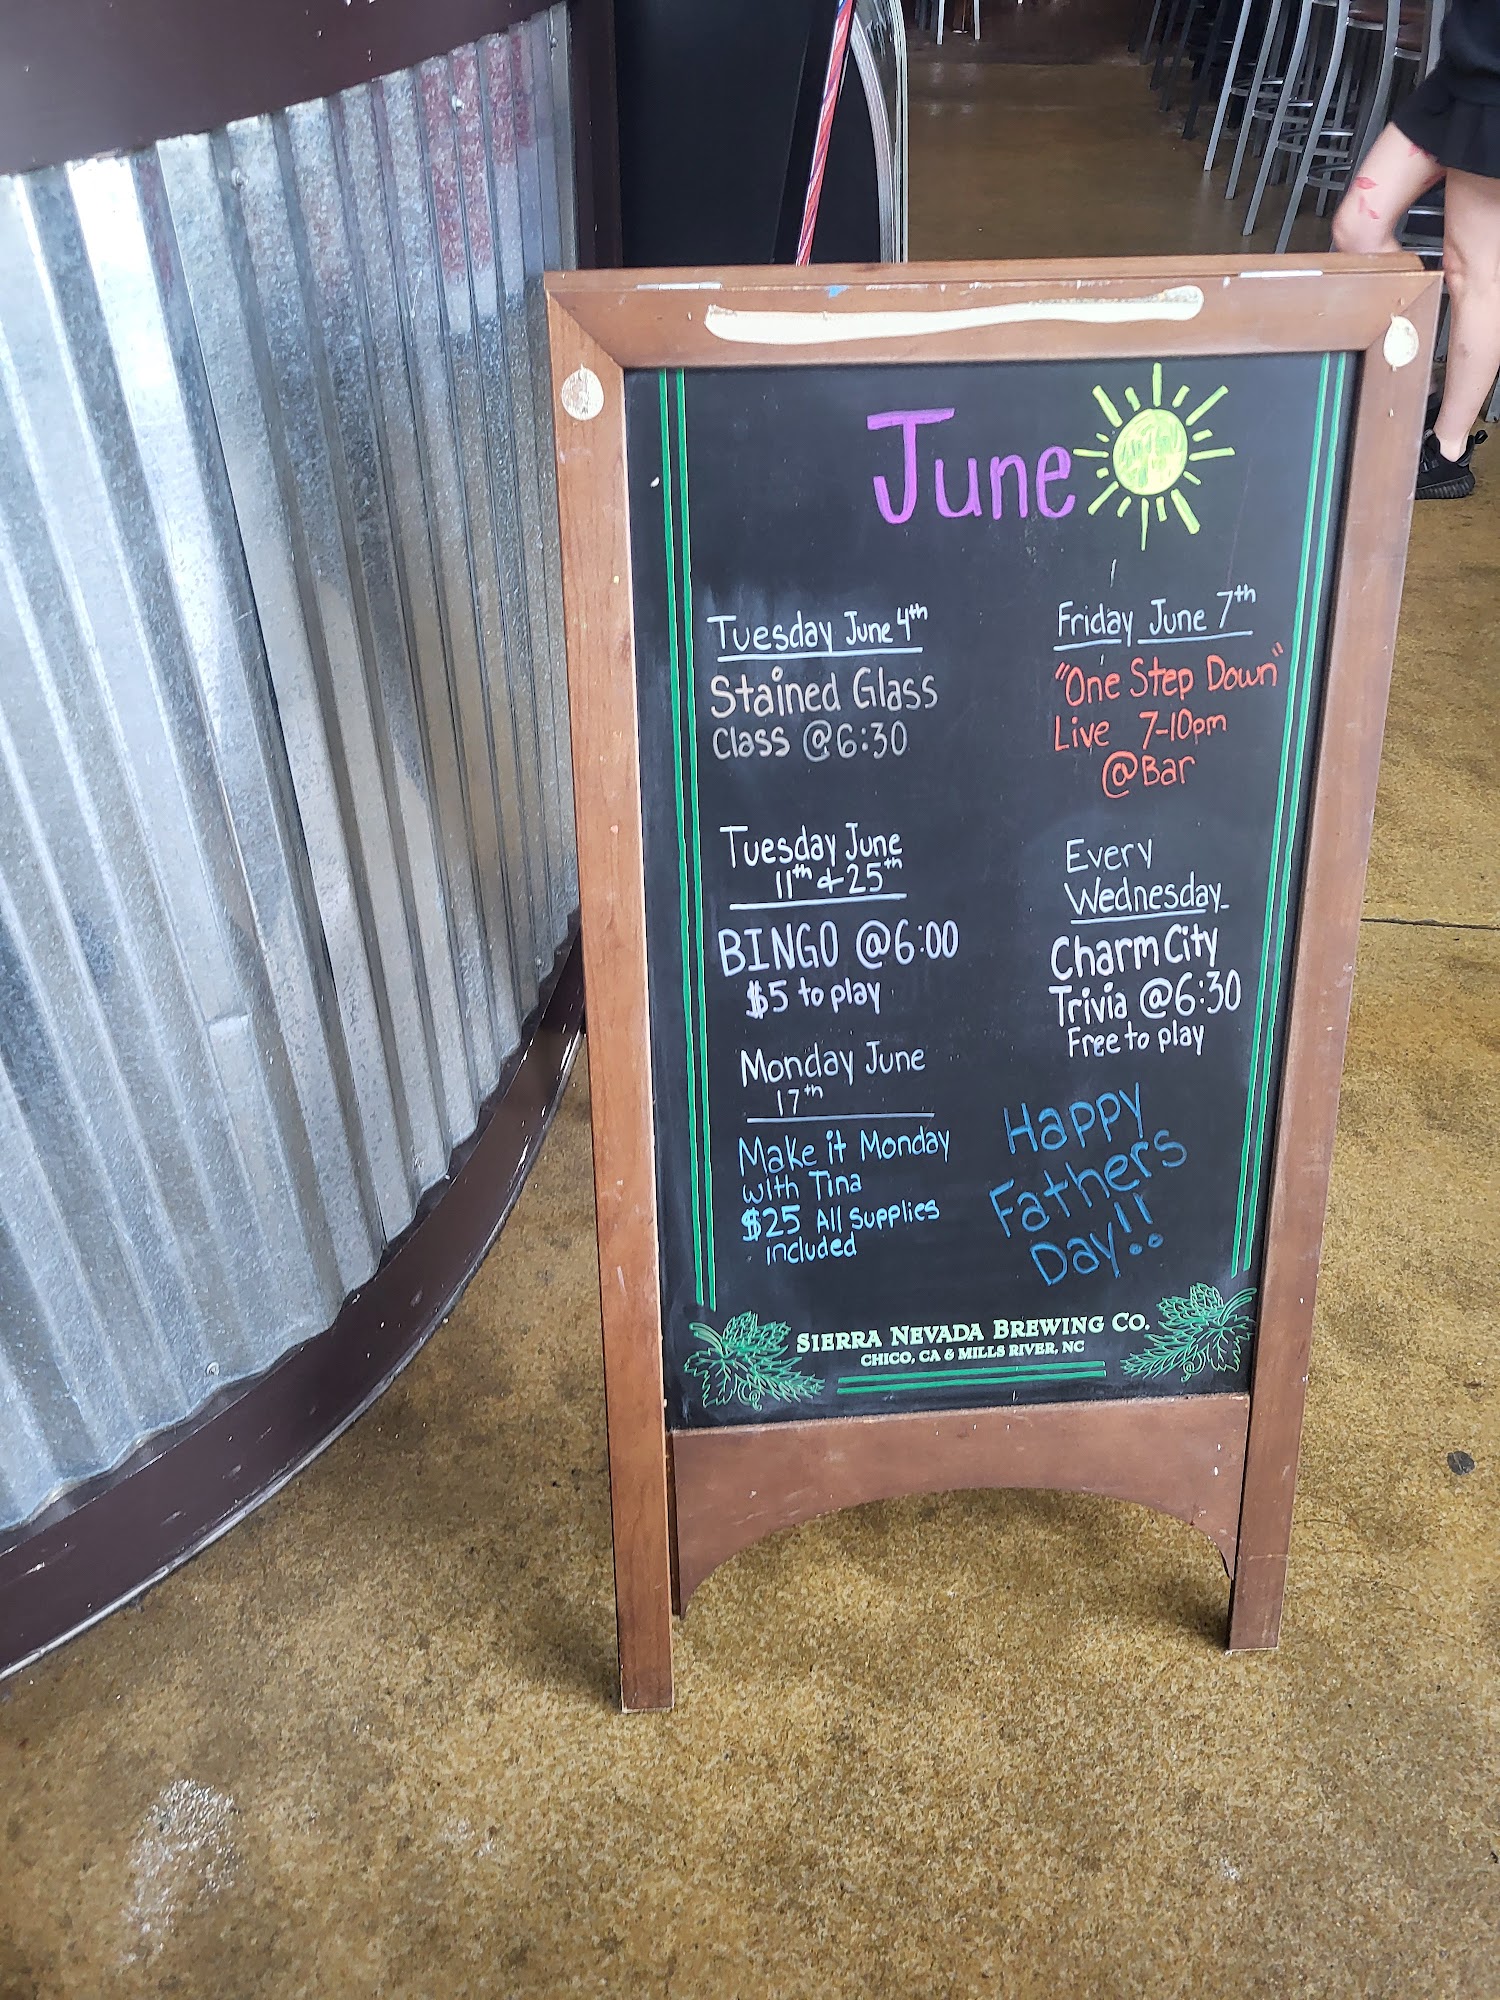 June
Tuesday June 4th
Stained Glass
Class @6:30
Friday June 7th
"One Step Down"
Live 7-10pm
@Bar
Tuesday June
11th & 25th
BINGO @6:00
$5 to play
Every
Wednesday
Charm City
Trivia @6:30
Free to play
Monday June
17th
Make it Monday
with Tina
$25 All Supplies
included
Happy
Fathers
Day!!
SIERRA NEVADA BREWING CO.
CHICO, CA & MILLS RIVER, NC